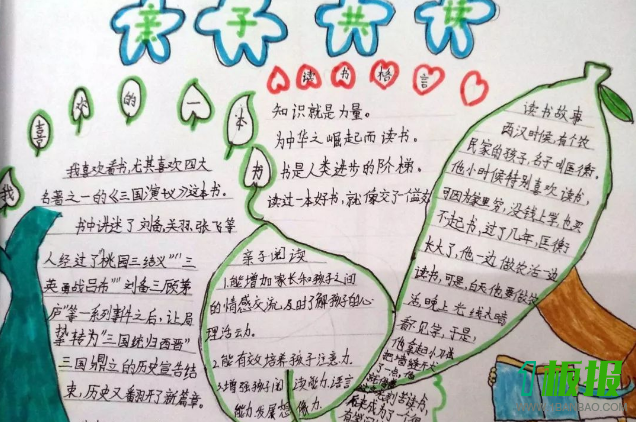 亲子共读
我喜欢的一本书
我喜欢看书,尤其喜欢四大
名著之一的《三国演义》这本书。
书中讲述了刘备、关羽、张飞等
人经过了“桃园三结义”“三
英画战吕布”“刘备三顾茅
庐”等一系列事件之后,让局
势转为“三国统归西晋”
三国鼎立的历史宣告结
束,历史又翻开了新篇章。
读书格言
知识就是力量。
为中华之崛起而读书。
书是人类进步的阶梯。
读过一本好书,就像交了一个益友
亲子阅读
1.能增加家长和孩子之间
的情感交流,及时了解孩子的心
理活动。
2.能有效培养孩子注意力
3.增强孩子阅读能力、语言
能力、发展想像力。
读书故事
西汉时候,有个农
民家的孩子,名子叫匡衡。
他小时候特别喜欢读书,
可因为家里穷,没钱上学,也买
不起书,过了几年,匡衡
长大了,他一边做农活一边
读书,可是,白天他要做农
活,晚上光线太暗
看不见字,于是,
他拿起小刀
把墙缝
了一点,
读书,
板报